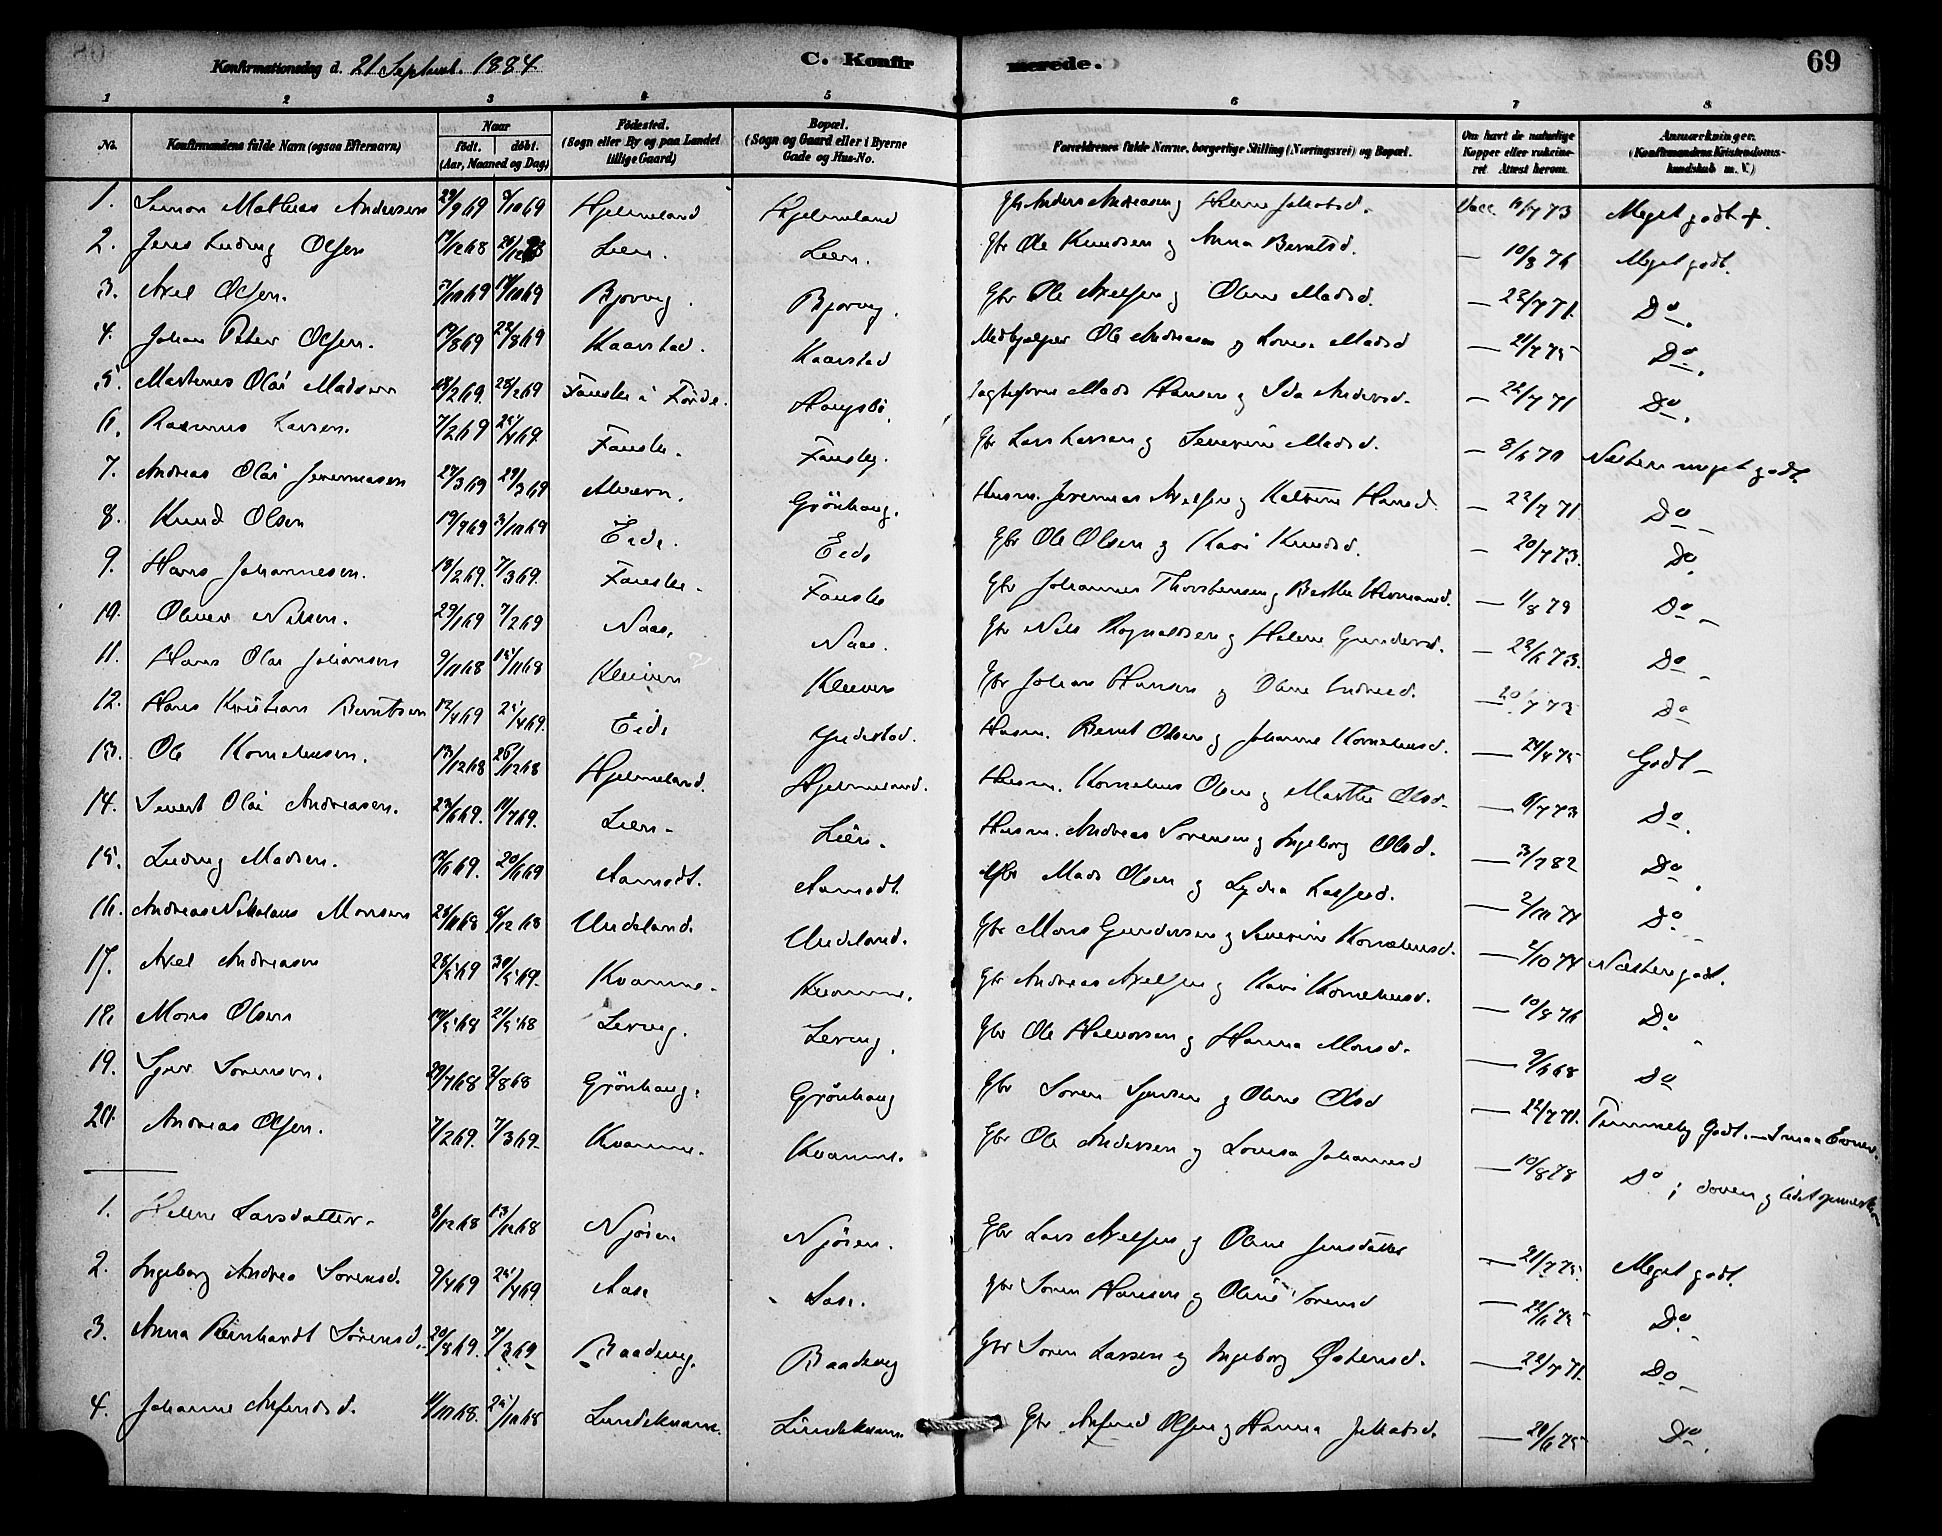 Konfirmationsdag d. 21 Septemb. 1884
C. Konfirmerede.
69
1 2 3 4 5 6 7 8
No. Konfirmandens fulde Navn (ogsaa Efternavn) Naar født. døbt. (Aar, Maaned og Dag) Fødested. (Sogn eller By og paa Landet tillige Gaard) Bopæl. (Sogn og Gaard eller i Byerne Gade og Hus-No.) Forældrenes fulde Navne, borgerlige Stilling (Næringsvei) og Bopæl. Om havt de naturlige Kopper eller vakcineret Attest herom. Anmærkninger. (Konfirmandens Kristendomskundskab m. V.)
1. Simon Mathias Andersen 29/9 69 3/10 69 Hjelmeland Hjelmeland Gbr Anders Andreasen og Helene Jakobsd. Vacc. 6/7 73 Meget godt +.
2. Jens Ludvig Olsen 19/12 68 26/12 68 Lien. Lien. Gbr Ole Knudsen og Anna Berntsd. — 10/8 76 Meget godt.
3. Axel Olsen. 3/10 69 17/10 69 Bjorvig. Bjorvig. Gbr Ole Axelsen og Oline Madsd. — 22/7 71. Do.
4. Johan Peter Olsen. 19/8 69 22/8 69 Kaarstad. Kaarstad Medhjelper Ole Andreasen og Lovise Madsd — 21/7 75 Do.
5. Martinus Olai Madsen 18/2 69. 28/2 69 Fauske i Förde. Haugsbö. Madss Hansen og Ida Andersd. — 22/7 71 Do.
6. Rasmus Larsen. 7/2 69 25/4 69. Fauske. Fauske. Gbr Lars Larsen og Severine Madsd. — 8/6 70 Næsten meget godt.
7. Andreas Olai Jeremiasen 27/3 69 29/3 69 Grönhaug. Husm. Jeremias Axelsen og Kathrine Hansd — 22/7 71. Do —
8. Knud Olsen 19/9 69 3/10 69 Eide. Eide Gbr Ole Olsen og Kari Knudsd. — 20/7 73. Do
9. Hans Johannesen. 13/2 69. 7/3 69. Fauske. Fauske Gbr Johannes Thorstensen og Berthe Hermansd. — 1/8 79 Do —
10. Oliver Nilsen. 29/1 69 7/2 69 Naas. Naas. Gbr Nils Rognaldsen og Helene Gundersd. — 22/6 73. Do —
11. Hans Olai Johansen 9/11 68 15/11 68 Kleiven Kleiven Gbr Johan Hansen og Oline Andread. — 20/7 73 Do
12. Hans Kristian Berntsen 12/4 69 25/4 69. Eide Gjelestad. Husm. Bernt Olsen og Johanne Korneliusd. — 24/4 75 Godt —
13. Ole Korneliusen. 13/12 68 26/12 68 Hjelmeland. Hjelmeland. Husm. Kornelius Olsen og Marthe Olsd. — 6/7 73 Do.
14. Sivert Olai Andreasen. 23/6 69 11/7 69. Lien. Lien. Husm. Andreas Sörensen og Ingeborg Olsd. — 3/7 82 Do.
15. Ludvig Madsen. 12/6 69. 20/6 69 Aamodt. Aamodt. Gbr Mads Olsen og Lydia Kaspersd. — 2/10 74 Do.
16. Andreas Nikolaus Monsen 28/11 68 6/12 68 Undeland. Undeland. Gbr Mons Gundersen og Severine Korneliusd. — 2/10 74 Næsten godt.
17. Axel Andreasen 28/5 69 30/5 69. Kvamme. Kvamme. Gbr Andreas Axelsen og Kari Korneliusd. — 10/8 76 Do.
18. Mons Olsen 19/5 68 21/5 68 Lervig. Lervig. Gbr Ole Halvorsen og Hanna Monsd. — 9/6 68 Do
19. Sjur Sörensen. 29/7 68 2/8 68 Grönhaug. Grönhaug Gbr Sören Sjursen og Oline Olsd — 22/7 71. Temmelig Godt. — Smaa Evner.
20. Andreas Olsen. 7/2 69. 7/3 69. Kvamme. Kvamme. Gbr Ole Andersen og Lovisa Johannesd — 10/8 78 Do; doven og lidet
1. Helene Larsdatter. 8/12 68 13/12 68 Njösen Njösen. Gbr Lars Axelsen og Oline Jensdatter — 21/7 75. Meget godt.
2. Ingeborg Andrea Sörensd. 9/4 69 25/4 69. Aase Aase. Gbr Sören Hansen og Oline Sörensd — 22/6 75 Do.
3. Anna Reinhardt Sörensd. 20/8 69. 7/3 69 Baadevig. Baadevig Gbr Sören Larsen og Ingeborg Östensd. — 22/7 71. Do —
4. Johanne Anfindsd. 11/10 68. 25/10 68 Lundekvam. Lundekvam. Gbr Anfind Olsen og Hanna Jakobsd. — 20/6 75 Do.